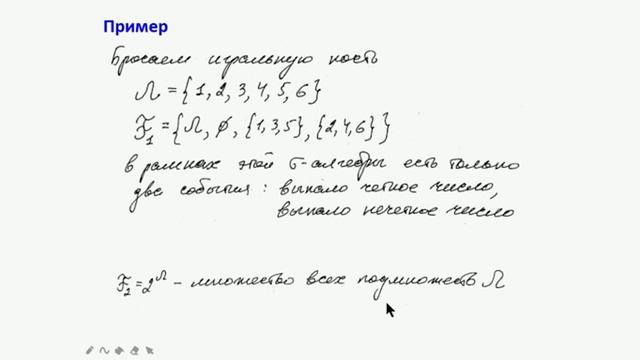 Пример
Бросаем игральную кость
Ω = {1, 2, 3, 4, 5, 6}
ℱ₁ = {Ω, ∅, {1,3,5}, {2,4,6}}
в рамках этой σ-алгебры есть только
две события: выпало четное число,
выпало нечетное число
ℱ₂ = 2^Ω – множество всех подмножеств Ω